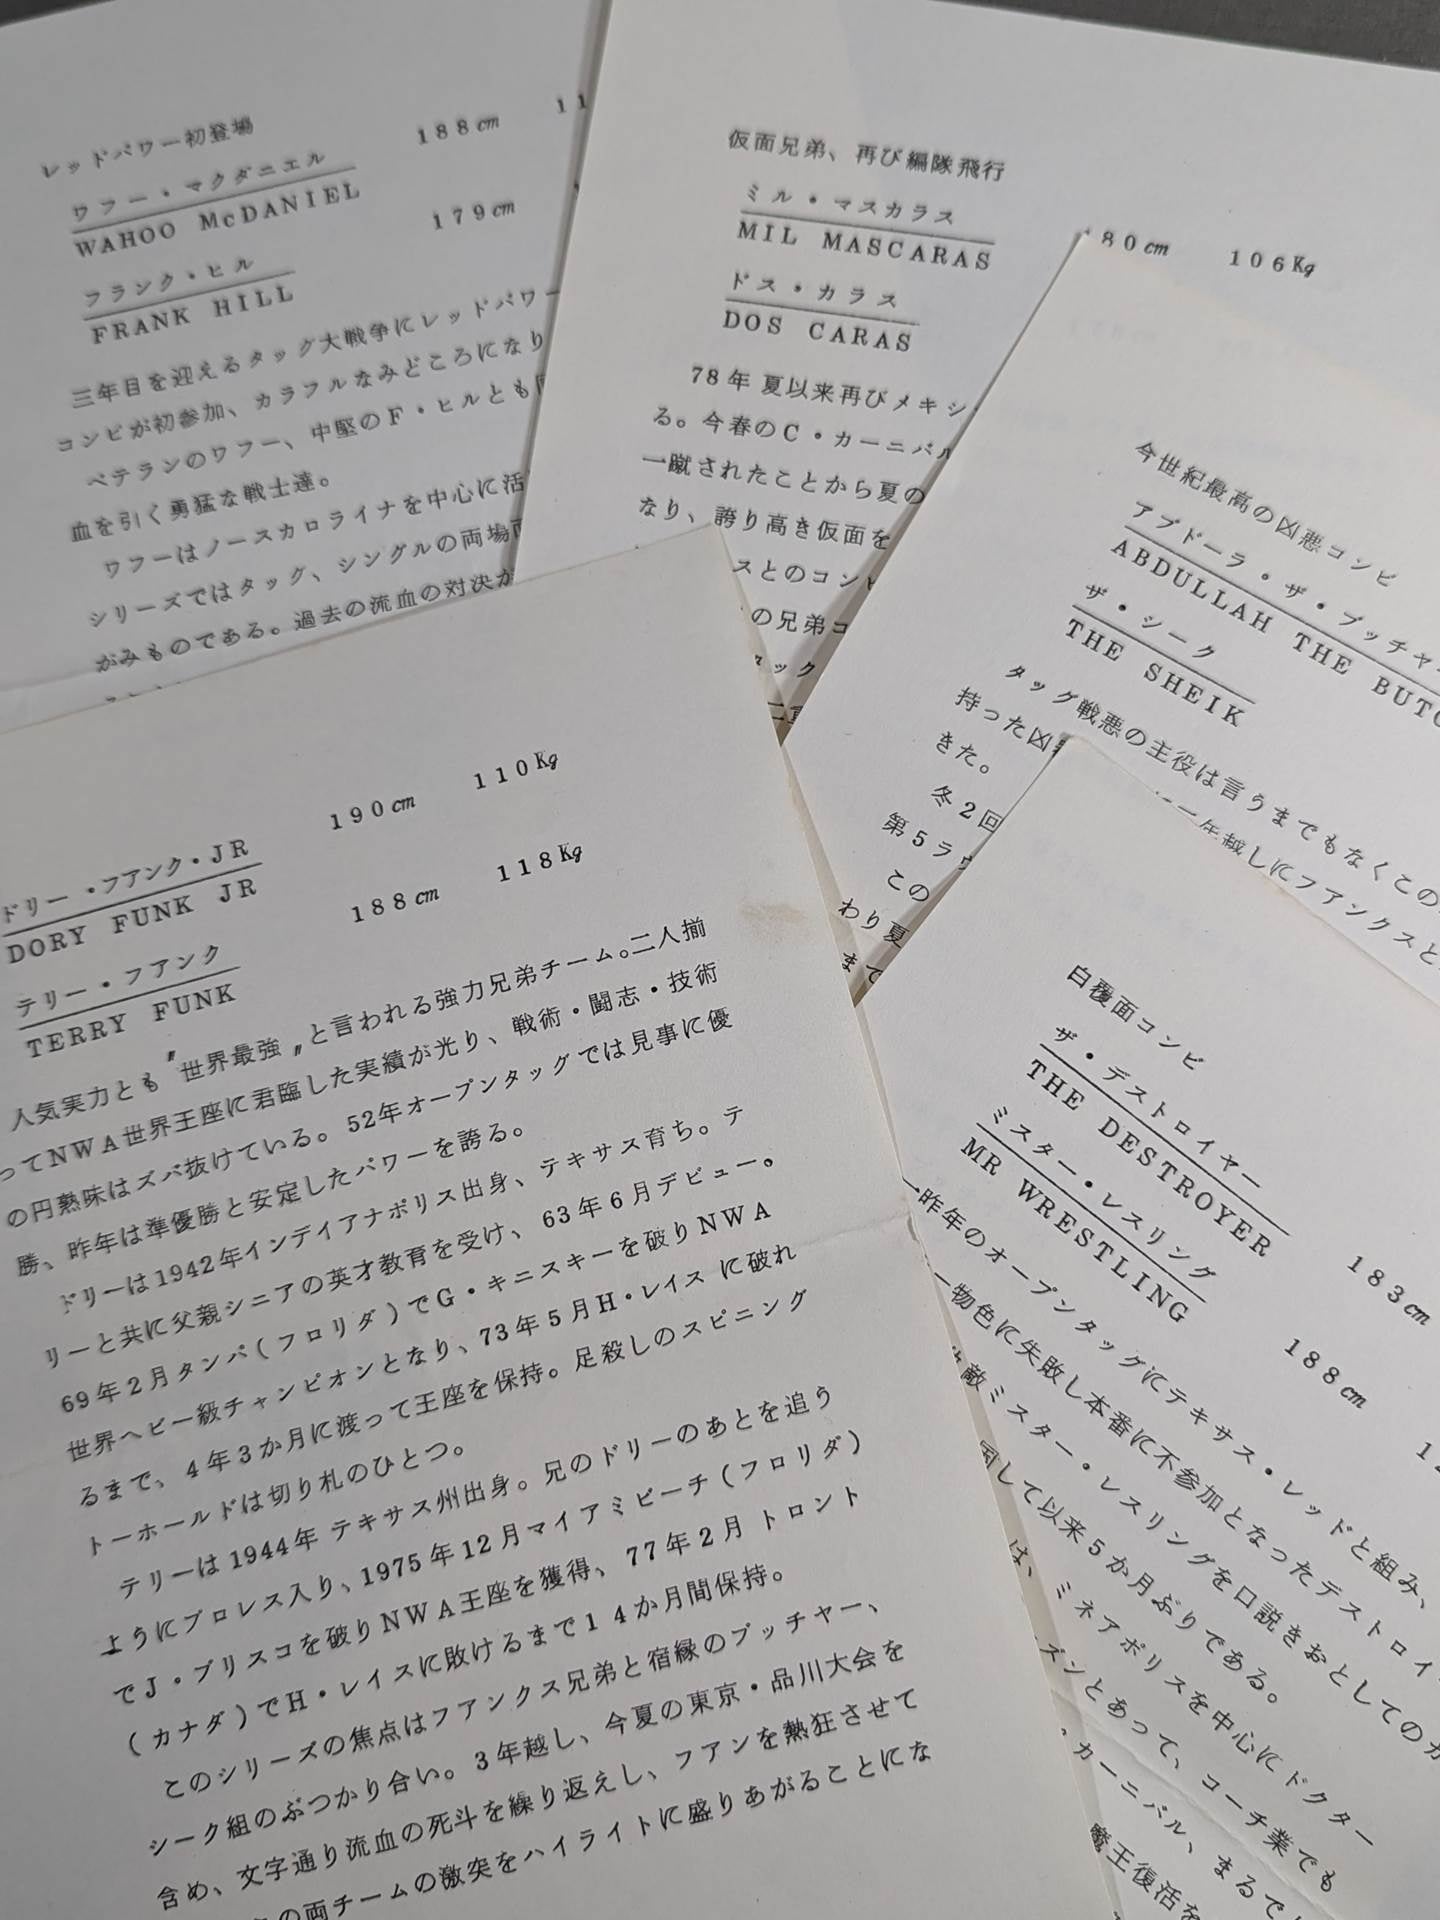 レッドパワー初登場
ワフー・マクダニエル 188cm 11
WAHOO McDANIEL
フランク・ヒル 179cm
FRANK HILL
三年目を迎えるタッグ大戦争にレッドパワー
コンビが初参加、カラフルなみどころになり
ベテランのワフー、中堅のF・ヒルとも
血を引く勇猛な戦士達。
ワフーはノースカロライナを中心に活
シリーズではタッグ、シングルの両場面
がみものである。過去の流血の対決が
仮面兄弟、再び編隊飛行
ミル・マスカラス 180cm 106Kg
MIL MASCARAS
ドス・カラス
DOS CARAS
78年夏以来再びメキシ
る。今春のC・カーニバル
一蹴されたことから夏の
なり、誇り高き仮面を
スとのコンビ
の兄弟コ
タック
今世紀最高の凶悪コンビ
アブドーラ・ザ・ブッチャ
ABDULLAH THE BUTC
ザ・シーク
THE SHEIK
タッグ戦悪の主役は言うまでもなくこの
持った凶
年越しにフアンクスと
きた。
冬2回
第5ラウ
この
わり夏
まで
ドリー・フアンク・JR 190cm 110Kg
DORY FUNK JR
テリー・フアンク 188cm 118Kg
TERRY FUNK
人気実力とも〝世界最強〟と言われる強力兄弟チーム。二人揃
ってNWA世界王座に君臨した実績が光り、戦術・闘志・技術
の円熟味はズバ抜けている。52年オープンタッグでは見事に優
勝、昨年は準優勝と安定したパワーを誇る。
ドリーは1942年インデイアナポリス出身、テキサス育ち。テ
リーと共に父親シニアの英才教育を受け、63年6月デビュー。
69年2月タンパ(フロリダ)でG・キニスキーを破りNWA
世界ヘビー級チャンピオンとなり、73年5月H・レイスに破れ
るまで、4年3か月に渡って王座を保持。足殺しのスピニング
トーホールドは切り札のひとつ。
テリーは1944年テキサス州出身。兄のドリーのあとを追う
ようにプロレス入り、1975年12月マイアミビーチ(フロリダ)
でJ・ブリスコを破りNWA王座を獲得、77年2月トロント
(カナダ)でH・レイスに敗けるまで14か月間保持。
このシリーズの焦点はフアンクス兄弟と宿縁のブッチャー、
シーク組のぶつかり合い。3年越し、今夏の東京・品川大会を
含め、文字通り流血の死斗を繰り返えし、フアンを熱狂させて
の両チームの激突をハイライトに盛りあがることにな
白覆面コンビ
ザ・デストロイヤー 183cm
THE DESTROYER
ミスター・レスリング 188cm
MR WRESTLING
一昨年のオープンタッグにテキサス・レッドと組み、
物色に失敗し本番に不参加となったデストロイ
敵ミスター・レスリングを口説きおとしてのカ
国して以来5か月ぶりである。
は、ミネアポリスを中心にドクター
ズンとあって、コーチ業でも
カーニバル、まるで
魔王復活を